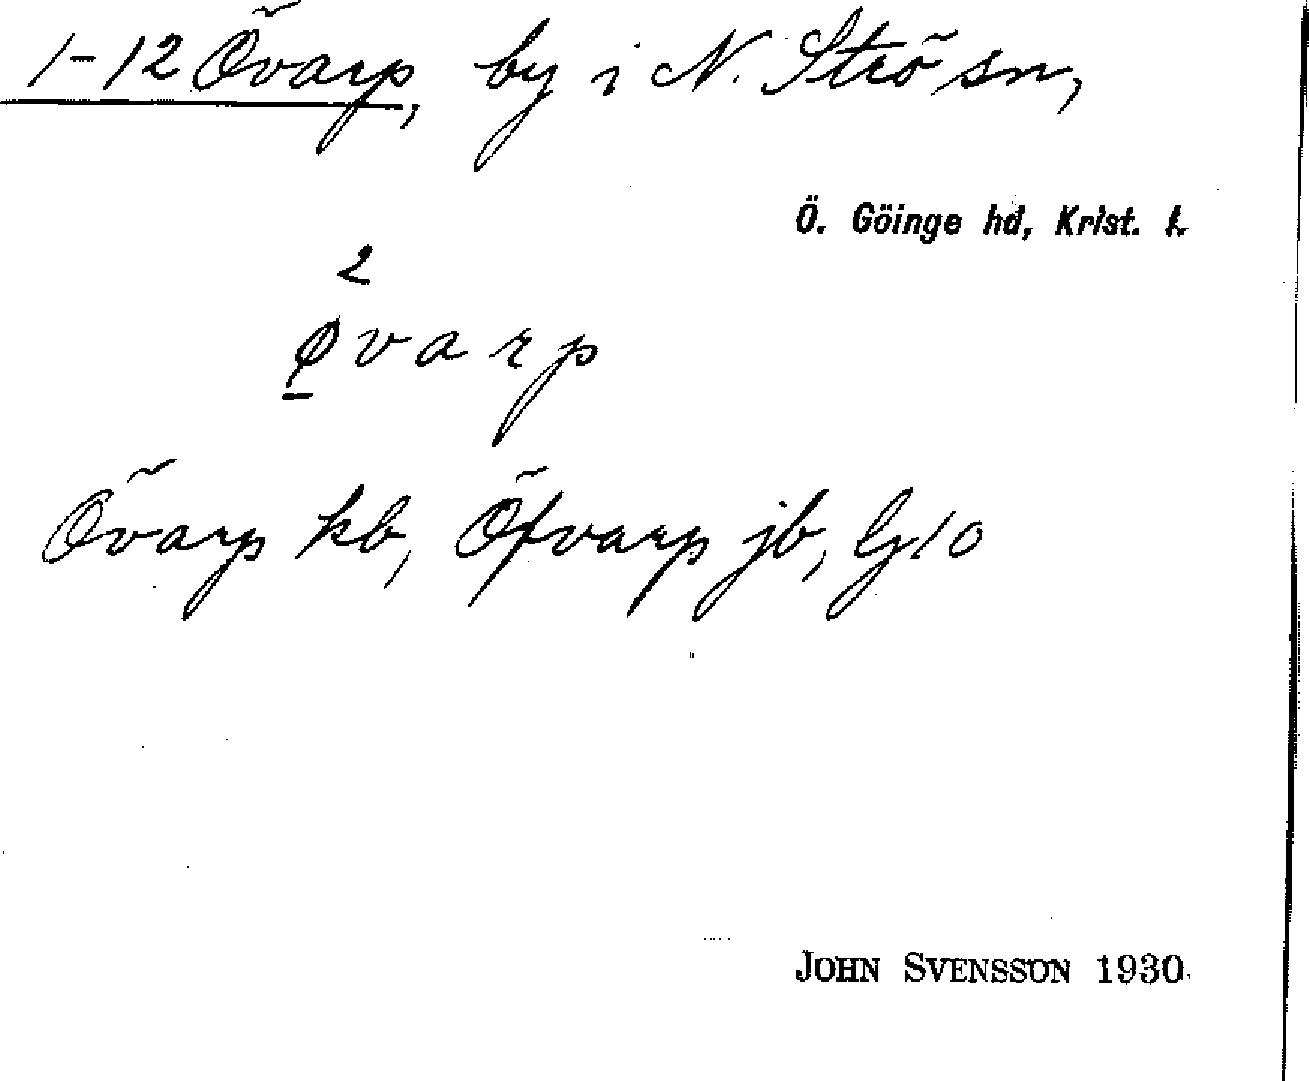 1-12 Övarp, by i N. Strö sn,
Ö. Göinge hd, Krist. l.
2
øvarp
Övarp kb, Öfvarp jb, G10
JOHN SVENSSON 1930